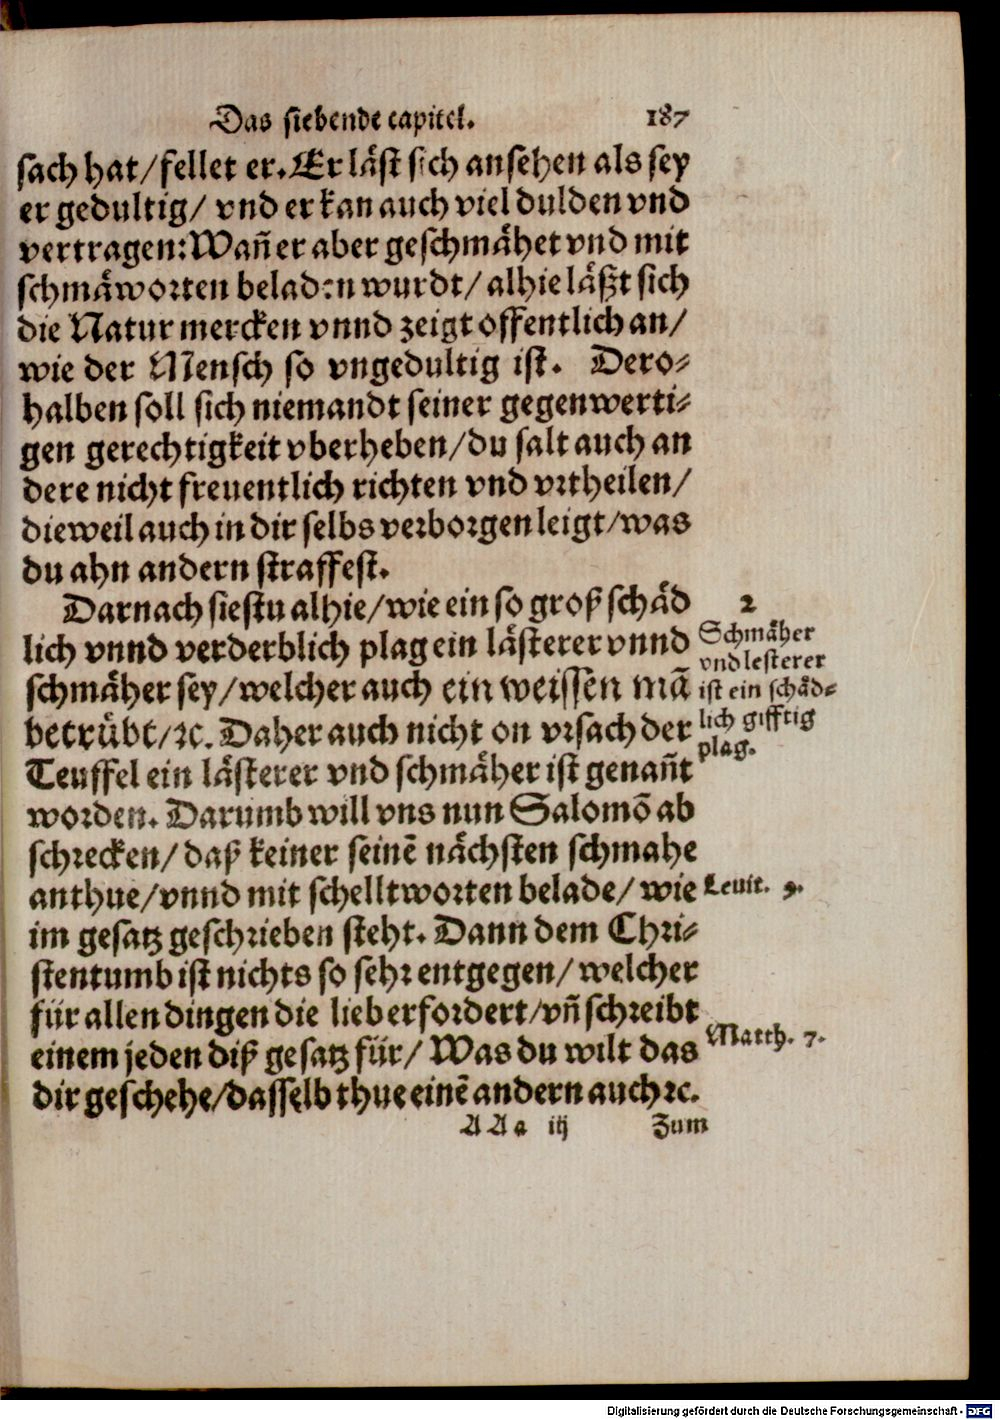 Das siebende capitel. 187
sach hat/fellet er. Er läst sich ansehen als sey
er gedultig/ vnd er kan auch viel dulden vnd
vertragen: Wañ er aber geschmähet vnd mit
schmäworten beladen wurdt/ alhie läßt sich
die Natur mercken vnnd zeigt offentlich an/
wie der Mensch so vngedultig ist. Dero-
halben soll sich niemandt seiner gegenwerti-
gen gerechtigkeit vberheben/du salt auch an
dere nicht freuentlich richten vnd vrtheilen/
dieweil auch in dir selbs verborgen leigt/was
du ahn andern straffest.
Darnach siestu alhie/wie ein so groß schäd
lich vnnd verderblich plag ein lästerer vnnd
schmäher sey/welcher auch ein weissen mā
betrübt/ꝛc. Daher auch nicht on vrsach der
Teuffel ein lästerer vnd schmäher ist genañt
worden. Darumb will vns nun Salomō ab
schrecken/ daß keiner seinē nächsten schmahe
anthue/vnnd mit schelltworten belade/ wie
im gesatz geschrieben steht. Dann dem Chri-
stentumb ist nichts so sehr entgegen/ welcher
für allen dingen die lieb erfordert/vñ schreibt
einem jeden diß gesatz für/ Was du wilt das
dir geschehe/dasselb thue einē andern auch ꝛc.
2
Schmäher
vnd lesterer
ist ein schäd-
lich gifftig
plag.
Leuit. 9.
Matth. 7.
A A a iij Zum
Digitalisierung gefördert durch die Deutsche Forschungsgemeinschaft - DFG